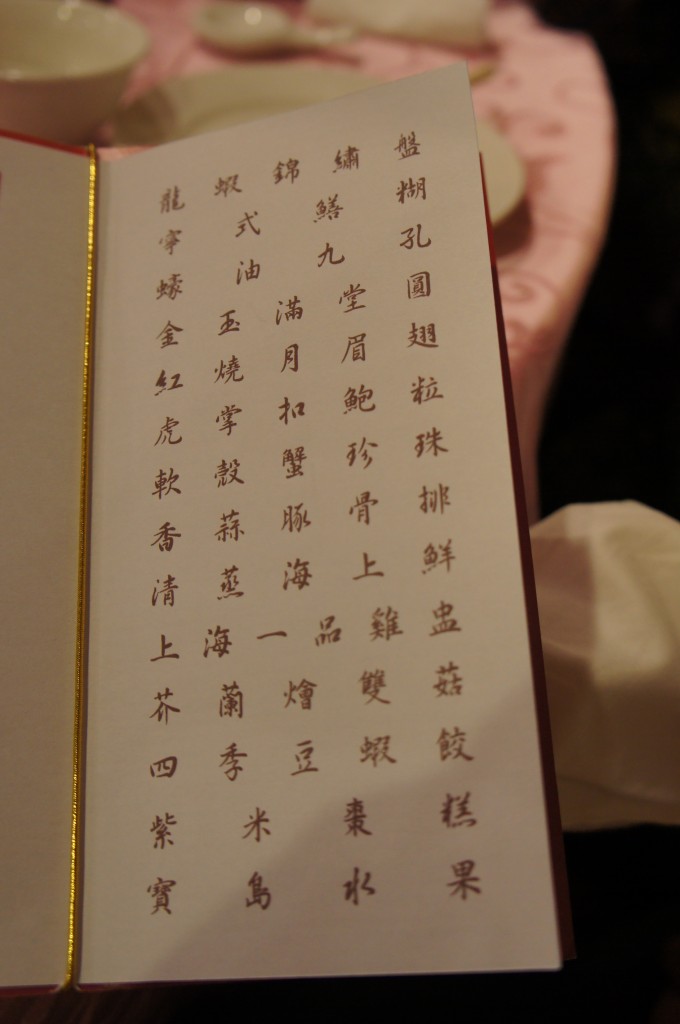 龍蝦錦繡盤
寧式鱔糊
蠔油九孔
金玉滿堂圓
紅燒月眉翅
虎掌扣鮑粒
軟殼蟹珍珠
香蒜豚骨排
清蒸海上鮮
上海一品雞盅
芥蘭燴雙菇
四季豆蝦餃
紫米棗糕
寶島水果